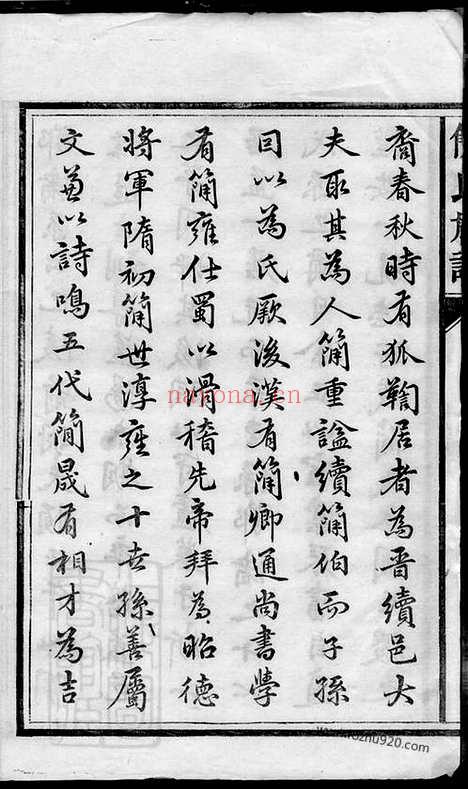 裔春秋時有狐鞫居者為晋續邑大
夫取其為人簡重謚續簡伯而子孫
因以為氏厥後漢有簡卿通尚書學
有簡雍仕蜀以滑稽先帝拜為昭德
將軍隋初簡世淳雍之十世孫善屬
文兼以詩鳴五代簡晟有相才為吉
nayona.cn
www.kongzhu920.com